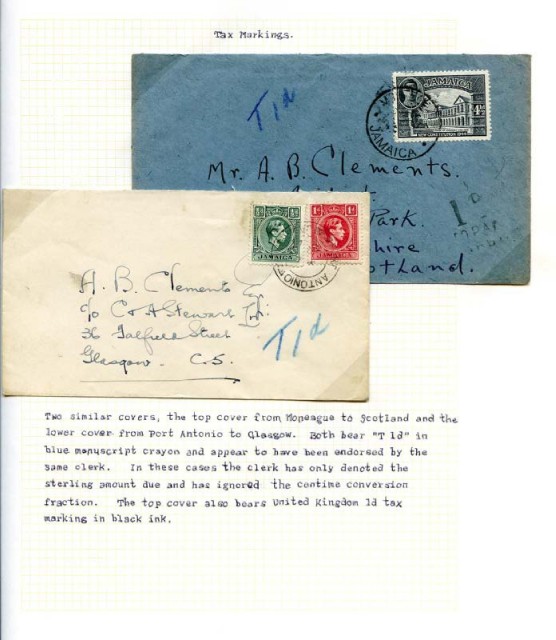 Tax Markings.
T1d
JAMAICA
4½d
NEW CONSTITUTION 1944
JAMAICA
Mr. A. B. Clements.
Park.
1D
Scotland.
JAMAICA
JAMAICA
ANTONIO
A. B. Clements Esq
c/o C & A Stewart Ltd:
36
Street
Glasgow. C.5.
T1d
Two similar covers, the top cover from Moneague to Scotland and the
lower cover from Port Antonio to Glasgow. Both bear "T 1d" in
blue manuscript crayon and appear to have been endorsed by the
same clerk. In these cases the clerk has only denoted the
sterling amount due and has ignored the centime conversion
fraction. The top cover also bears United Kingdom 1d tax
marking in black ink.